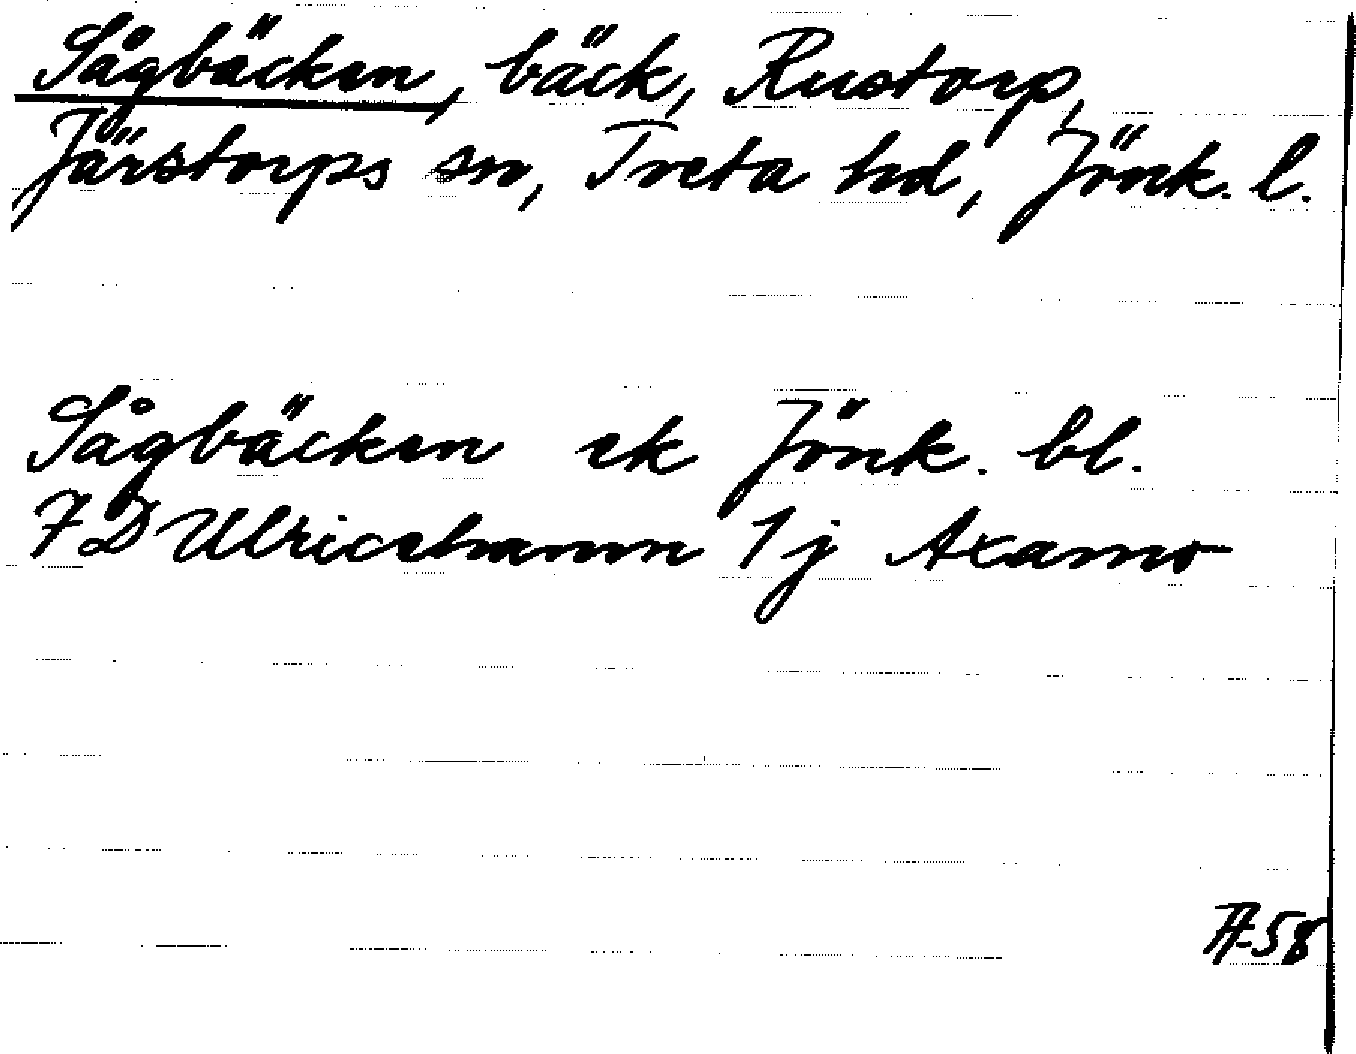 Sågbäcken, bäck, Rustorp,
Järstorps sn, Tveta hd, Jönk. l.
Sågbäcken ek Jönk. bl.
7 D Ulricehamn 1 j Axamo